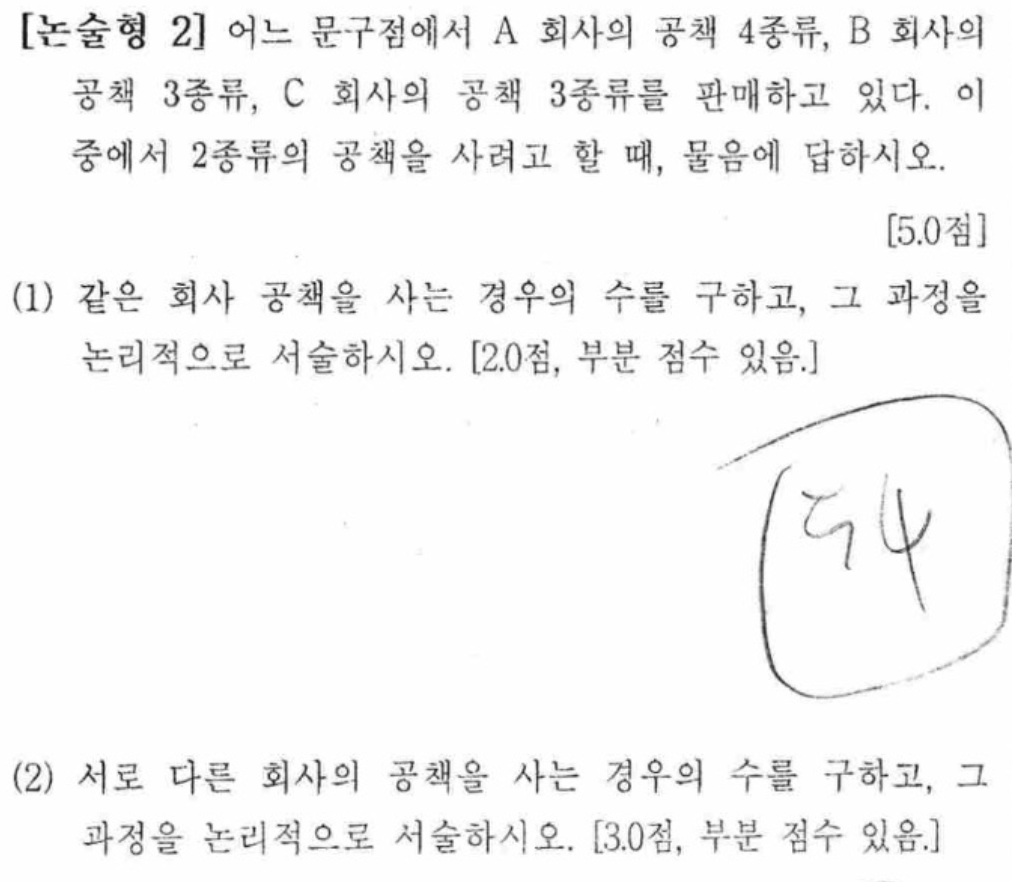 [논술형 2] 어느 문구점에서 A 회사의 공책 4종류, B 회사의
공책 3종류, C 회사의 공책 3종류를 판매하고 있다. 이
중에서 2종류의 공책을 사려고 할 때, 물음에 답하시오.
[5.0점]
(1) 같은 회사 공책을 사는 경우의 수를 구하고, 그 과정을
논리적으로 서술하시오. [2.0점, 부분 점수 있음.]
(2) 서로 다른 회사의 공책을 사는 경우의 수를 구하고, 그
과정을 논리적으로 서술하시오. [3.0점, 부분 점수 있음.]